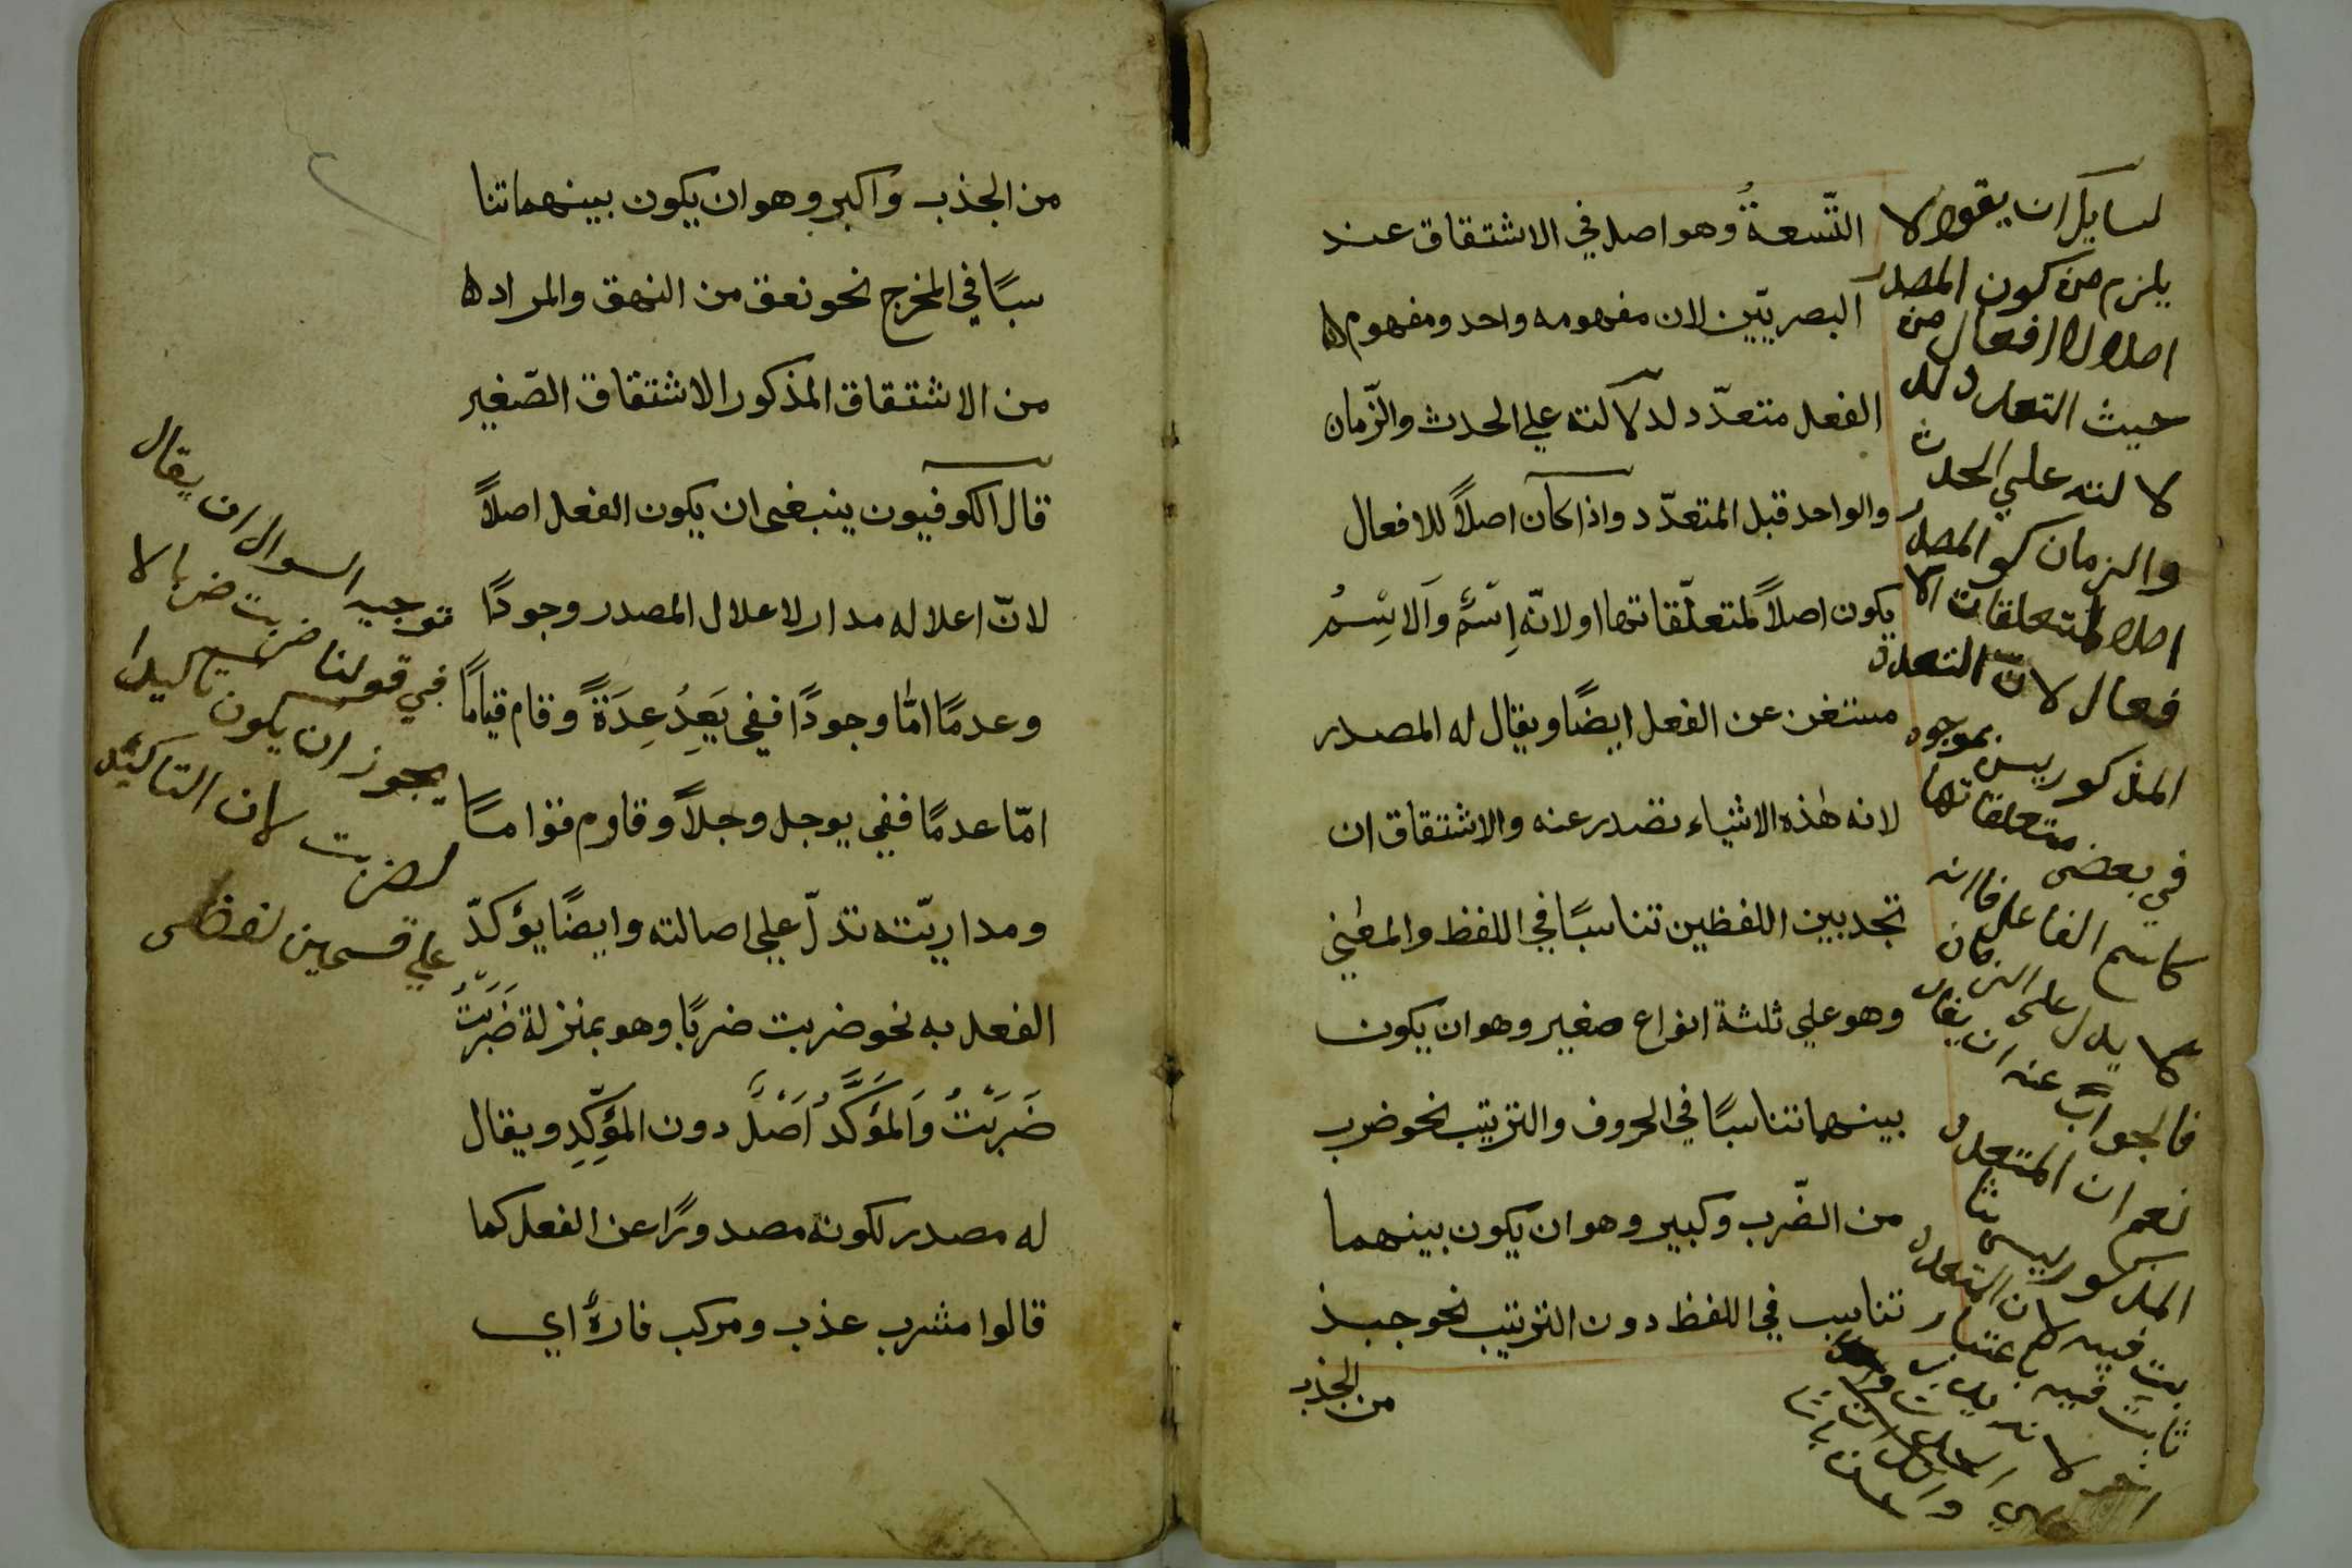 التّسعةُ وهو اصل في الاشتقاق عند
البصريّين لان مفهومه واحد ومفهوم
الفعل متعدّد لدلالته علي الحدث والزّمان
والواحد قبل المتعدّد واذا كان اصلاً للافعال
يكون اصلاً لمتعلّقاتها اولانّه اِسْمٌ وَالاِسْمُ
مستغن عن الفعل ايضًا ويقال له المصدر
لانه هٰذه الاشياء تصدر عنه والاشتقاق ان
تجد بين اللفظين تناسبًا في اللفظ والمعني
وهو علي ثلثة انواع صغير وهو ان يكون
بينهما تناسبًا في الحروف والترتيب نحو ضرب
من الضّرب وكبير وهو ان يكون بينهما
تناسب في اللفظ دون الترتيب نحو جبذ
من الجذب
لسايل ان يقول لا
يلزم من كون المصدر
اصلا للافعال من
حيث التعدد لد
لالته علي الحدث
والزمان كو المصدر
اصلا لمتعلقات الا
فعال لانّ التعدد
المذكور ليس بموجود
في بعض متعلقاتها
كاسم الفاعل فانه
لا يدل على الزمان
فالجواب عنه ان يقال
نعم ان المتعدد
المذكور ليس ثا
بت فيه لان التعدد
ثابت فيه باعتبار
من الجذب واكبر وهو ان يكون بينهما تنا
سبًا في المخرج نحو نعق من النهق والمراد
من الاشتقاق المذكور الاشتقاق الصّغير
قال الكوفيون ينبغى ان يكون الفعل اصلاً
لانّ اعلاله مدار لاعلال المصدر وجودًا
وعدمًا امّا وجودًا ففى يَعِدُ عِدَةً وقام قيامًا
امّا عدمًا ففي يوجل وجلاً وقاوم قوامًا
ومداريّته تدلّ علي اصالته وايضًا يؤكدّ
الفعل به نحو ضربت ضربًا وهو بمنزلة ضَرَبْتُ
ضَرَبْتُ وَالمؤَكَّدُ اَصْلٌ دون المؤَكِّدِ ويقال
له مصدر لكونه مصدورًا عن الفعل كما
قالوا مشرب عذب ومركب فارهٌ اي
توجيه السوال ان يقال
في قولنا ضربت ضربا لا
يجوز ان يكون تاكيدا
لضربت لان التاكيد
علي قسمين لفظى